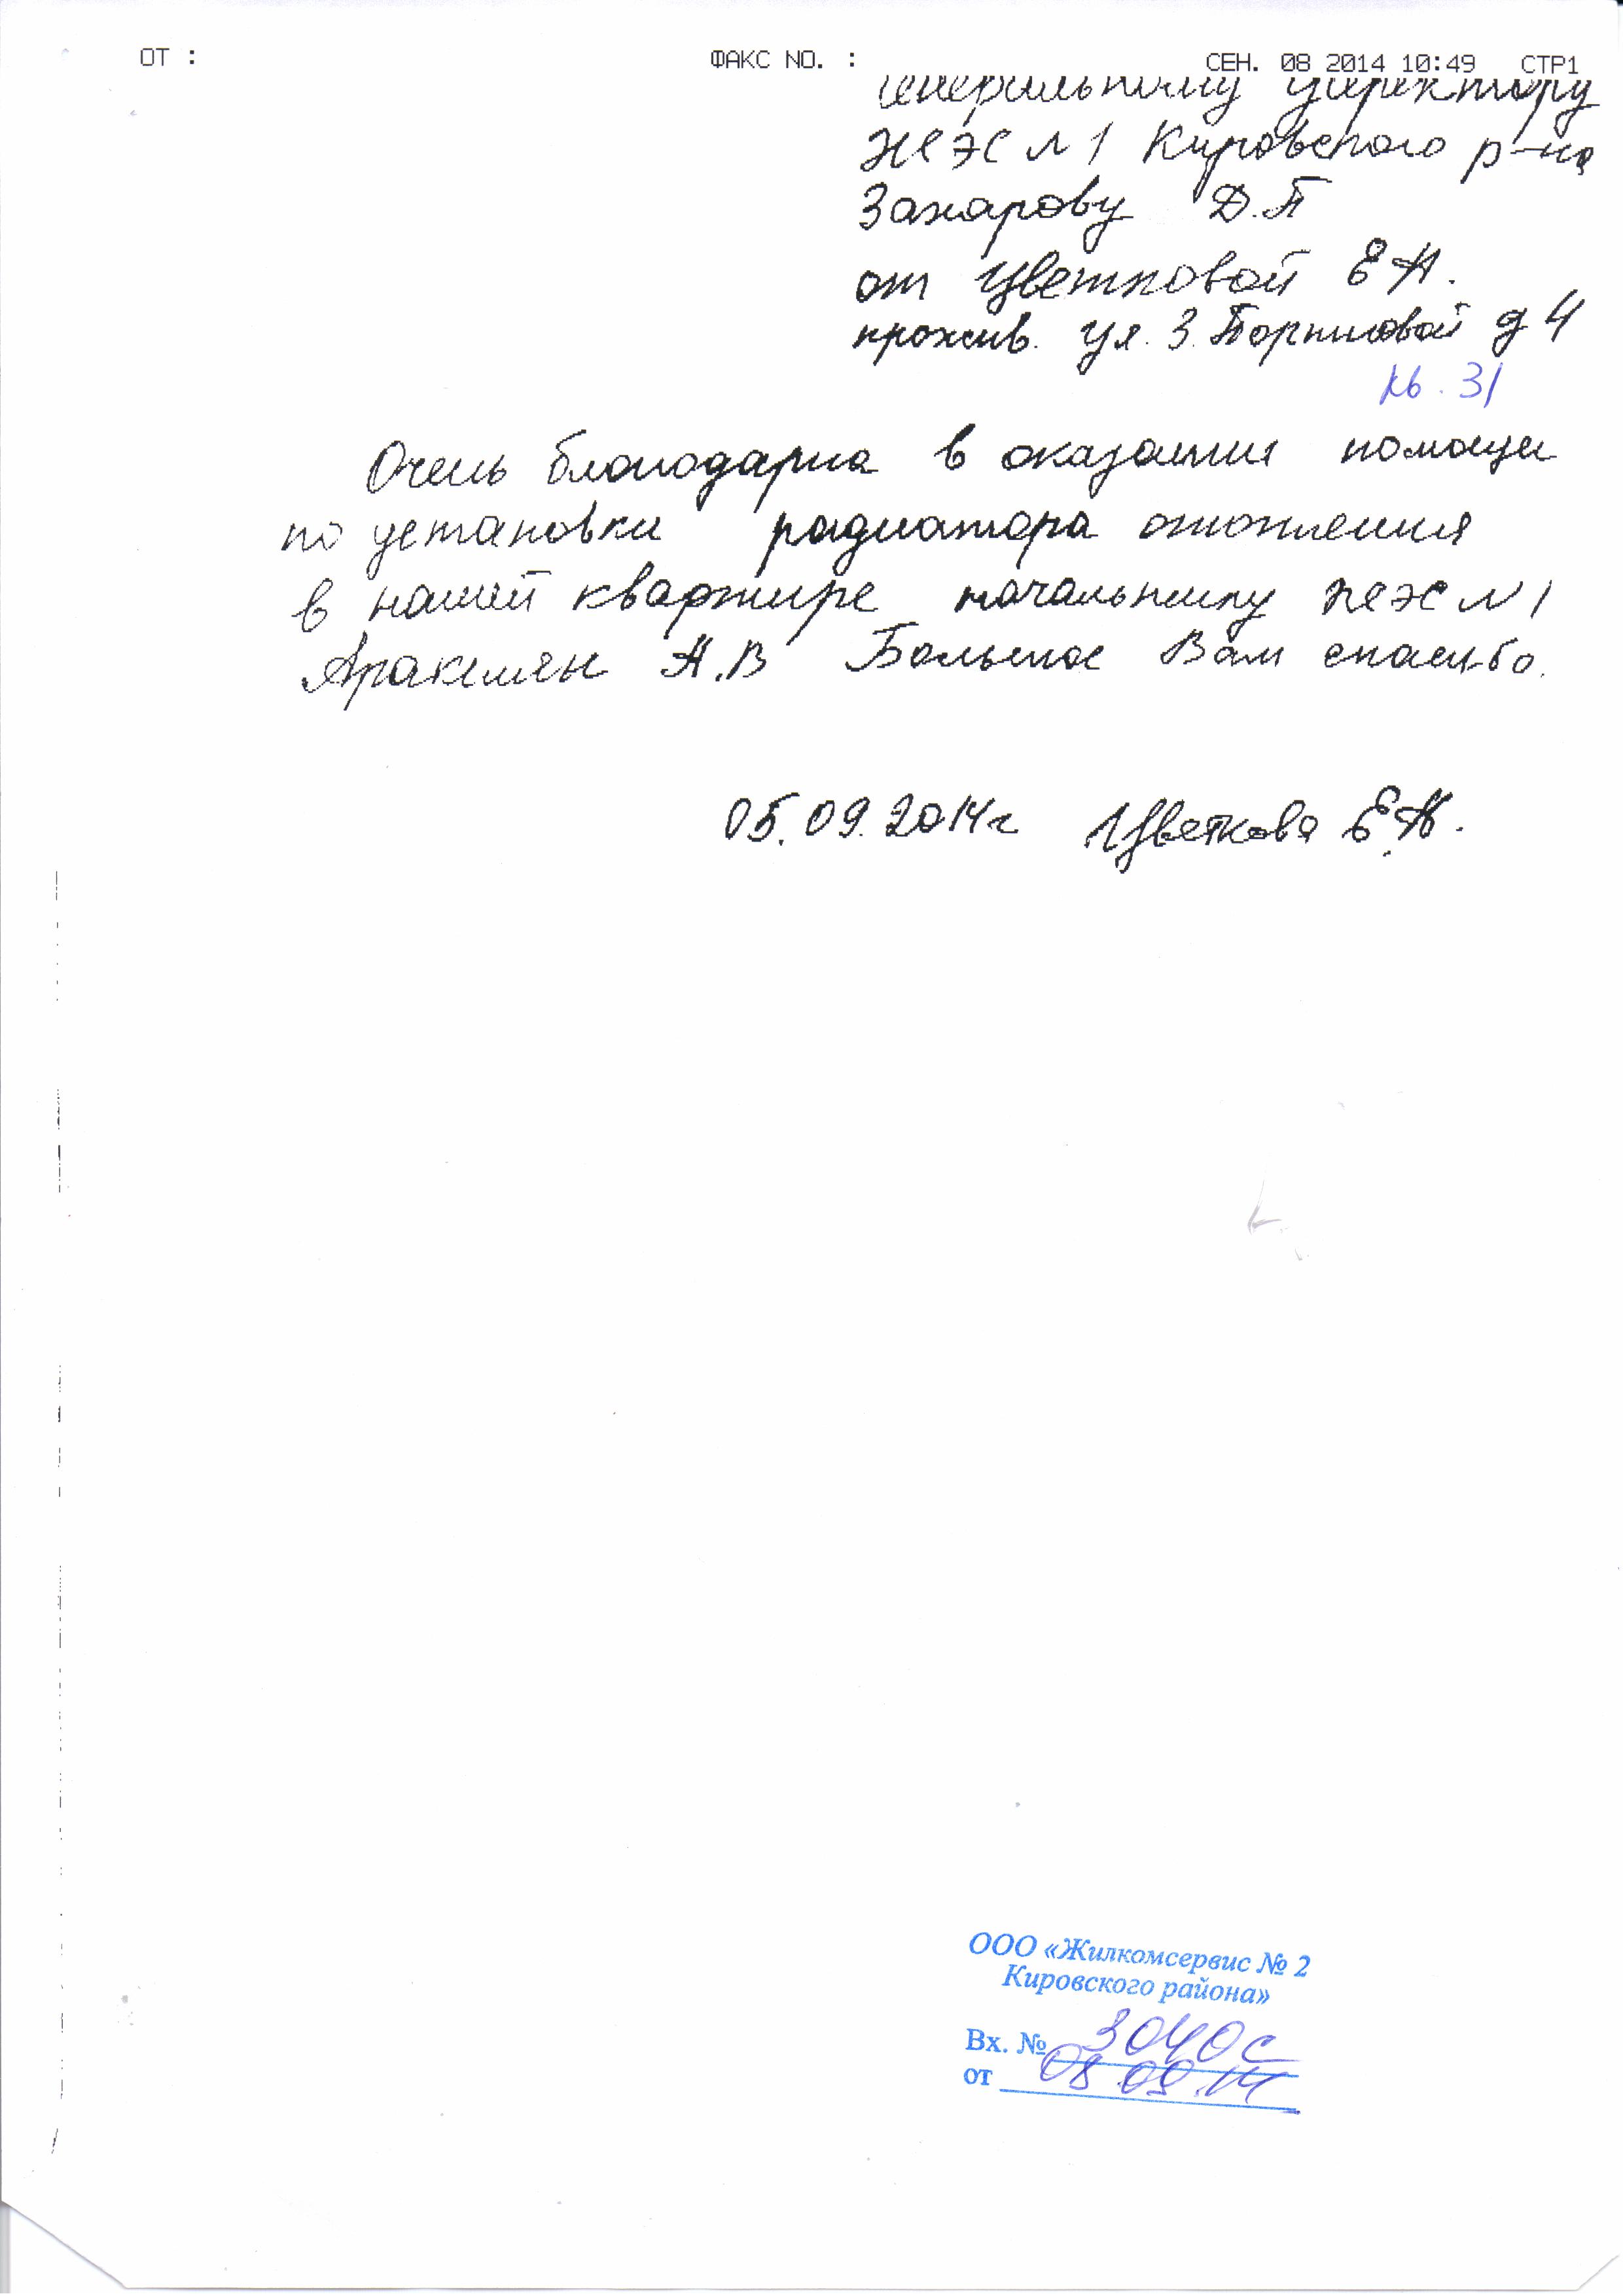 ОТ : ФАКС NO. : СЕН. 08 2014 10:49 СТР1
генеральному директору
ЖЭС N 1 Кировского р-на
Захарову Д.П
от Цветковой Е А.
прожив. ул. З. Портновой д 4
кв. 31
Очень благодарна в оказания помощи
по установки радиатора отопления
в нашей квартире начальнику ЖЭС N 1
Аракелян А.В Большое Вам спасибо.
05.09.2014г Цветкова Е.А.
ООО «Жилкомсервис № 2
Кировского района»
Вх. № 3040с
от 08.09.14